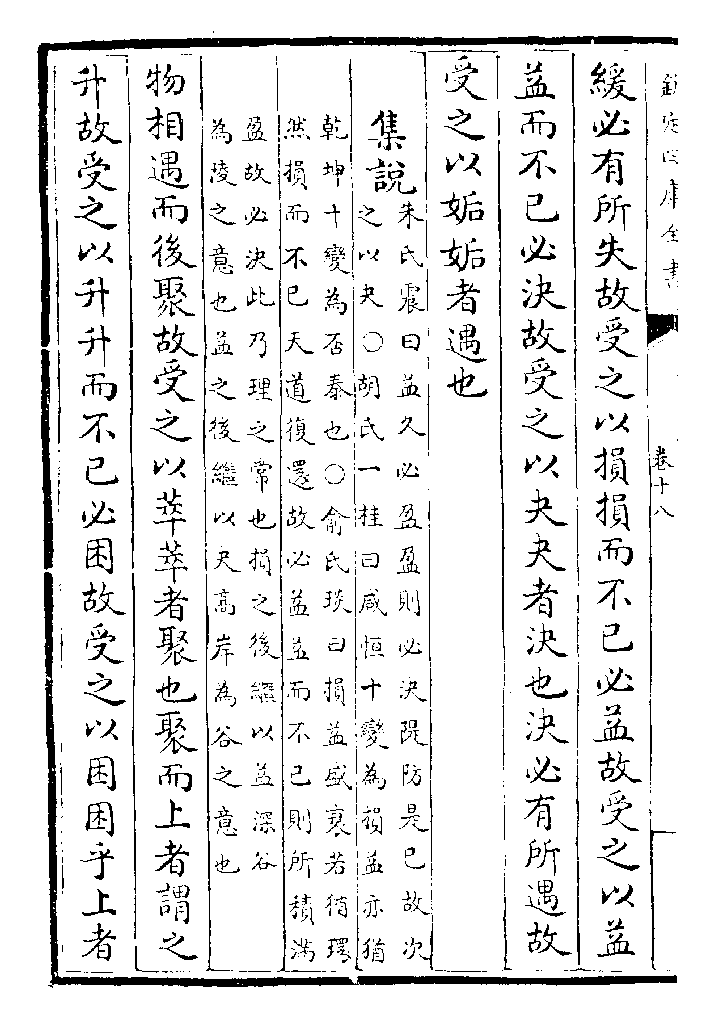 欽定四庫全書
卷十八
緩必有所失故受之以損損而不已必益故受之以益
益而不已必決故受之以夬夬者決也決必有所遇故
受之以姤姤者遇也
集說
朱氏震曰益久必盈盈則必決隄防是已故次
之以夬○胡氏一桂曰咸恒十變為損益亦猶
乾坤十變為否泰也○俞氏琰曰損益盛衰若循環
然損而不已天道復還故必益益而不已則所積滿
盈故必決此乃理之常也損之後繼以益深谷
為陵之意也益之後繼以夬高岸為谷之意也
物相遇而後聚故受之以萃萃者聚也聚而上者謂之
升故受之以升升而不已必困故受之以困困乎上者